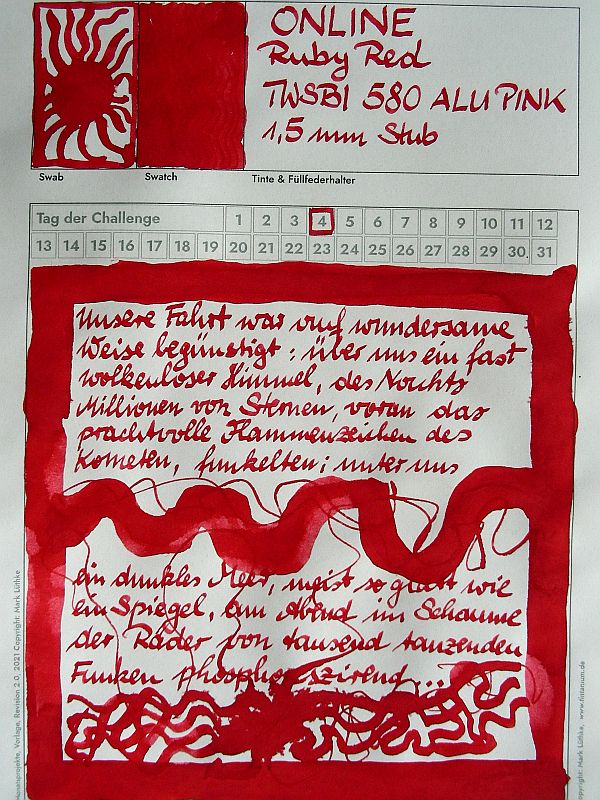 ONLINE
Ruby Red
TWSBI 580 ALU PINK
1,5 mm Stub
Swab Swatch Tinte & Füllfederhalter
Tag der Challenge 1 2 3 4 5 6 7 8 9 10 11 12
13 14 15 16 17 18 19 20 21 22 23 24 25 26 27 28 29 30 31
Unsere Fahrt war auf wundersame
Weise begünstigt: über uns ein fast
wolkenloser Himmel, des Nachts
Millionen von Sternen, voran das
prachtvolle Flammenzeichen des
Kometen, funkelten; unter uns
ein dunkles Meer, meist so glatt wie
ein Spiegel, am Abend im Schaume
der Räder von tausend tanzenden
Funken phosphoreszirend...
Monatsprojekte, Vorlage, Revision 2.0, 2021 Copyright: Mark Lüthke
Copyright: Mark Lüthke, www.fintanum.de